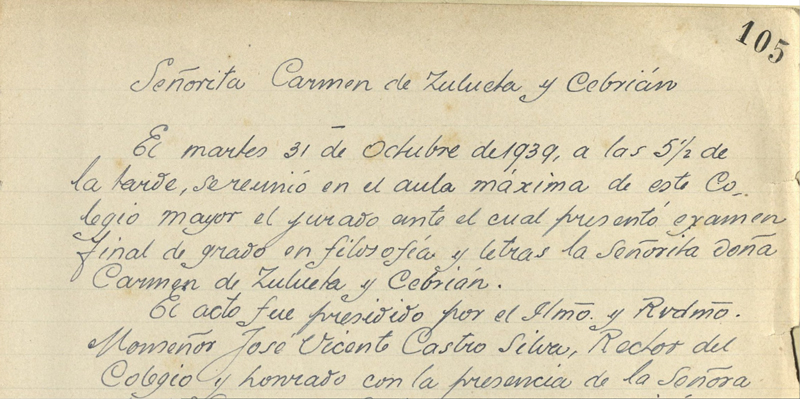 105
Señorita Carmen de Zulueta y Cebrián
El martes 31 de Octubre de 1939, a las 5½ de
la tarde, se reunió en el aula máxima de este Co-
legio mayor el jurado ante el cual presentó examen
final de grado en filosofía y letras la Señorita Doña
Carmen de Zulueta y Cebrián.
El acto fue presidido por el Ilmo. y Rvdmo.
Monseñor José Vicente Castro Silva, Rector del
Colegio y honrado con la presencia de la Señora